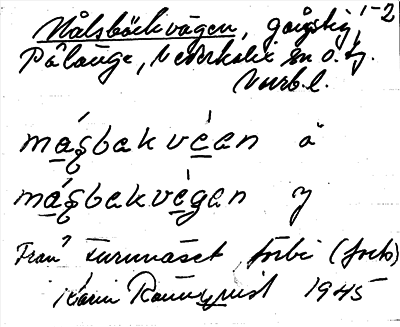 Målsbäckvägen, gångstig, 1-2
Pålänge, Nederkalix sn o. tg.
Nurb. l.
másbakvèan ä
másbakvègen y
Från förbi (forts)
Karin Rönnqvist 1945